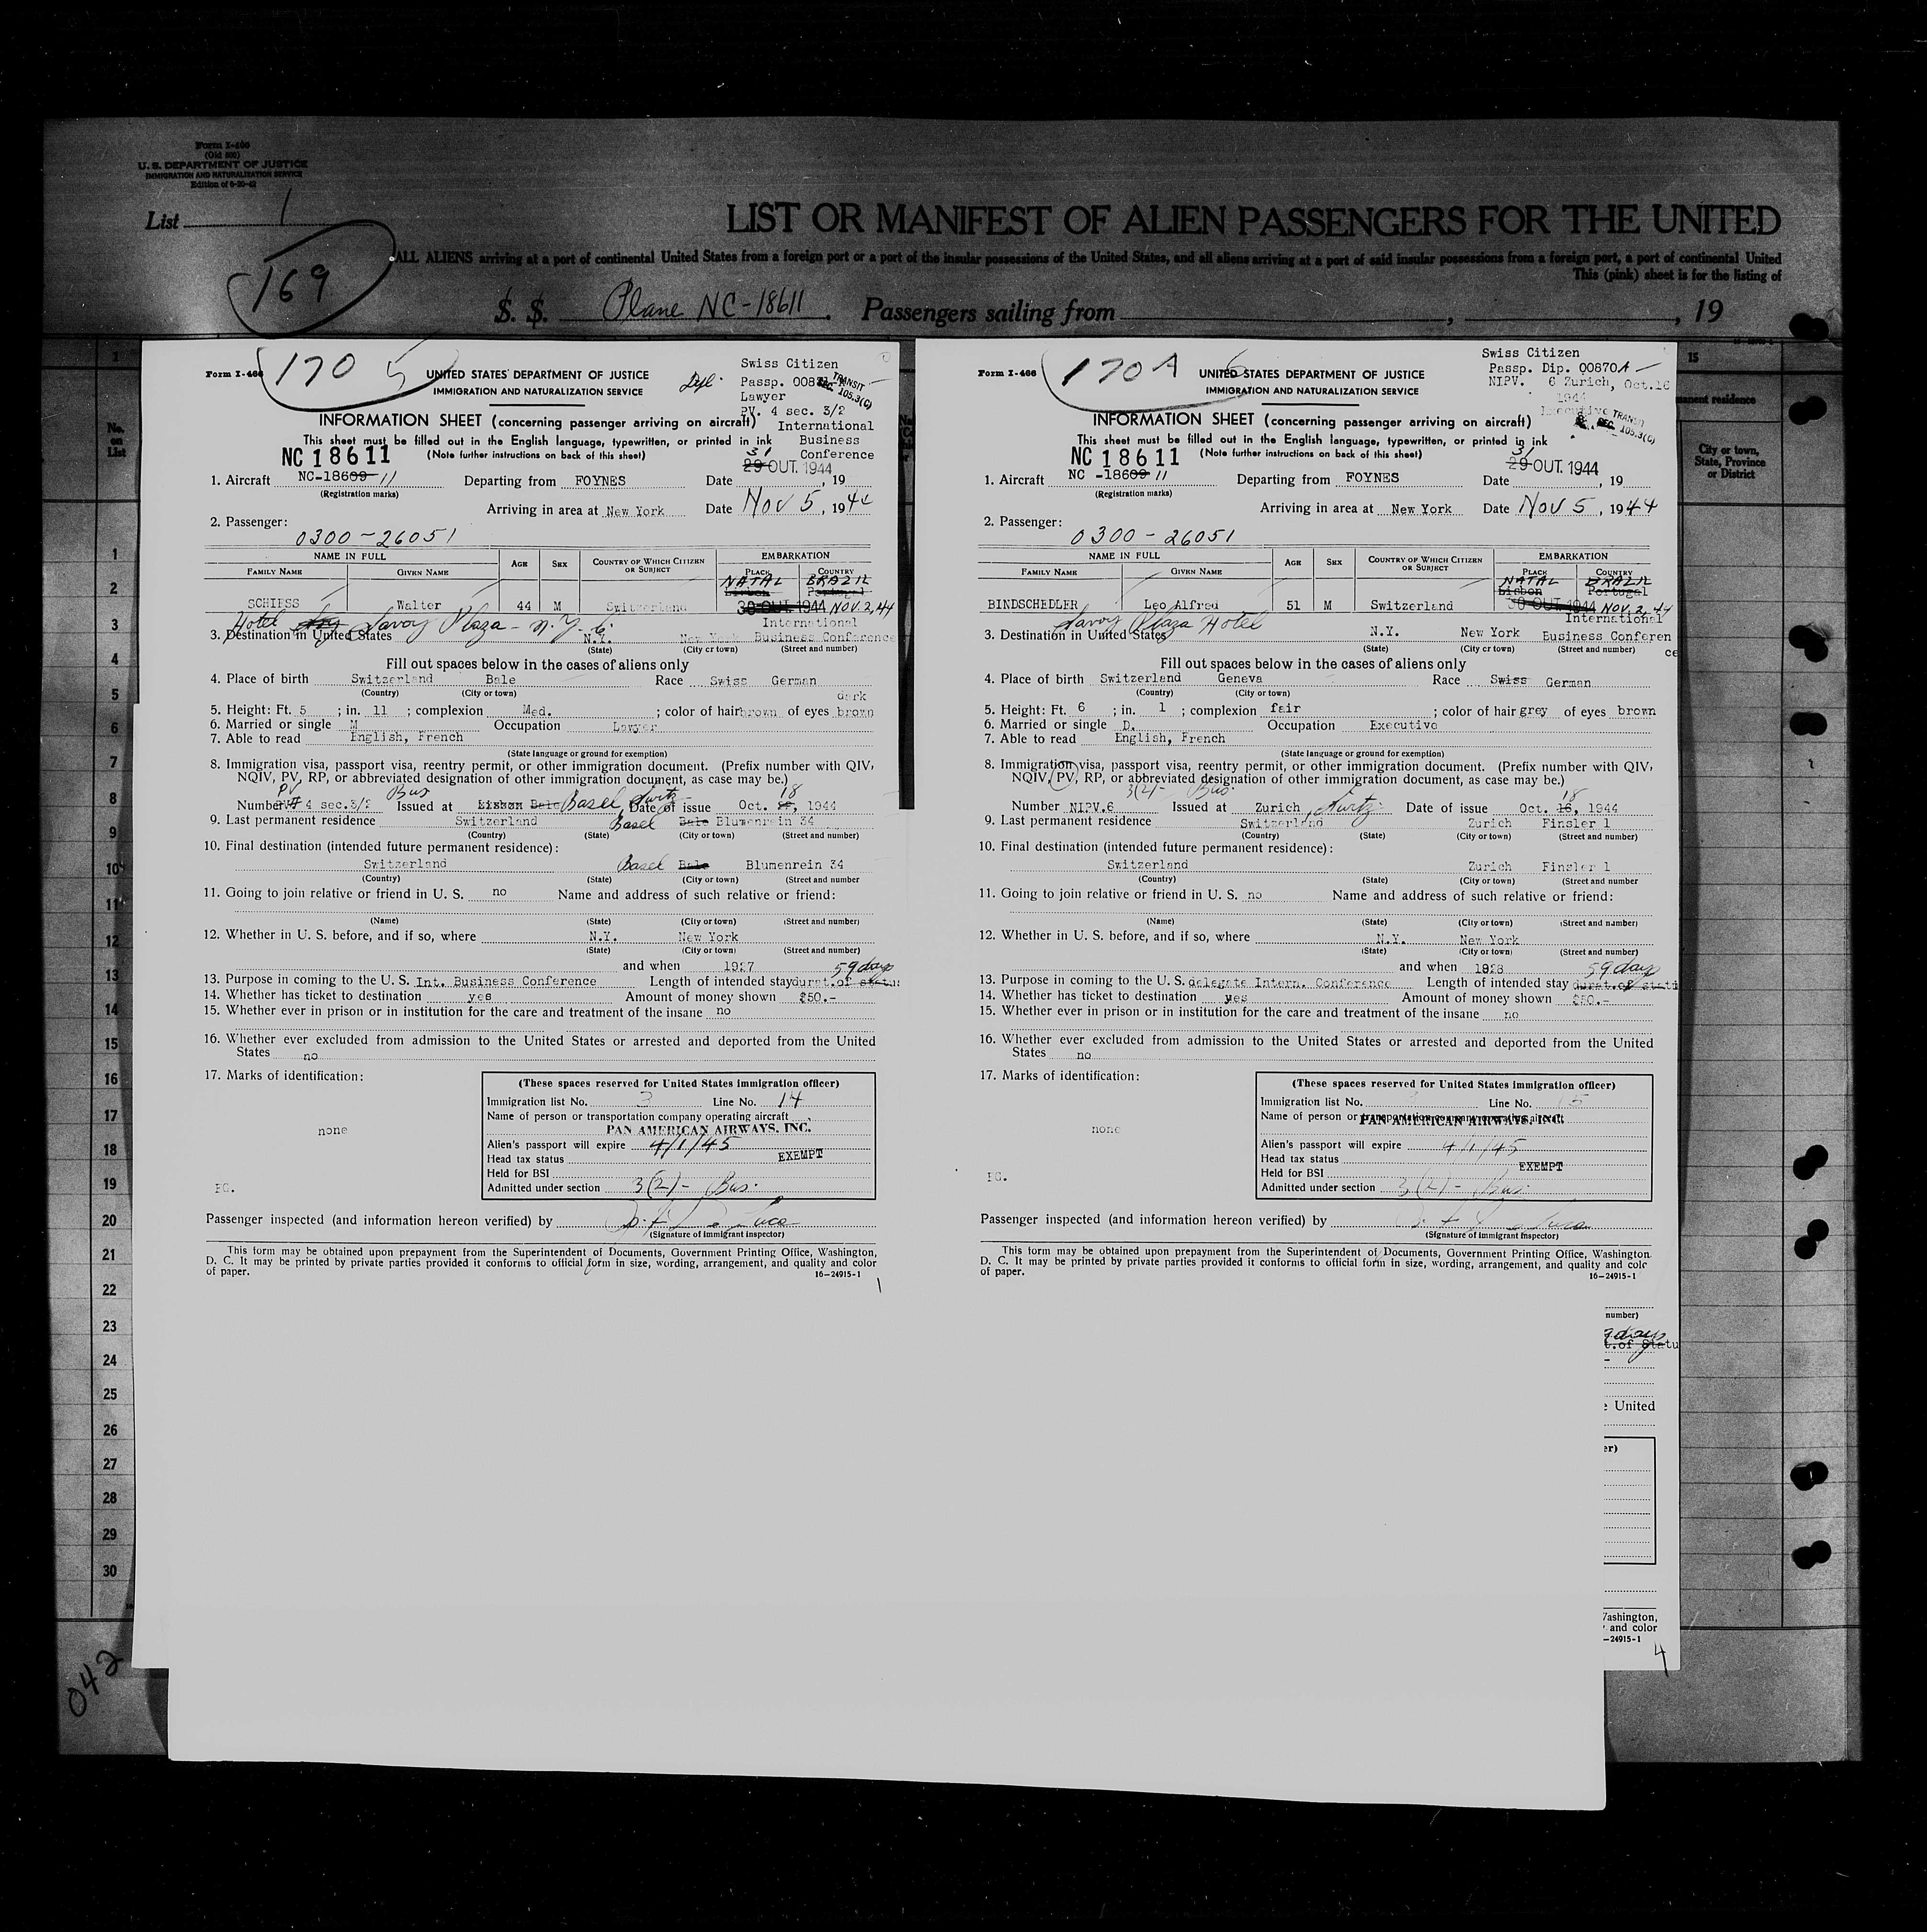 Form I-466
(Old 500)
U. S. DEPARTMENT OF JUSTICE
IMMIGRATION AND NATURALIZATION SERVICE
List 1
169
LIST OR MANIFEST OF ALIEN PASSENGERS FOR THE UNITED
ALL ALIENS arriving at a port of continental United States from a foreign port or a part of the insular possessions of the United States, and all aliens arriving at a port of said insular possessions from a foreign port, a part of continental United
This (pink) sheet is for the listing of
S. S. Plane NC-18611. Passengers sailing from , , 19
No. on List
1
2
3
4
5
6
7
8
9
10
11
12
13
14
15
16
17
18
19
20
21
22
23
24
25
26
27
28
29
30
042
Form I-466
170 5
UNITED STATES DEPARTMENT OF JUSTICE
IMMIGRATION AND NATURALIZATION SERVICE
Swiss Citizen
Passp.
TRANSIT
SEC. 105.3(C)
Lawyer
PV. 4 sec. 3/2
International
Business
Conference
INFORMATION SHEET (concerning passenger arriving on aircraft)
This sheet must be filled out in the English language, typewritten, or printed in ink
(Note further instructions on back of this sheet)
NC 18611
31
29 OUT. 1944
1. Aircraft NC-18609 11 Departing from FOYNES Date , 19
(Registration marks)
Arriving in area at New York Date Nov 5, 1944
2. Passenger:
0300-26051
NAME IN FULL AGE SEX COUNTRY OF WHICH CITIZEN OR SUBJECT EMBARKATION
FAMILY NAME GIVEN NAME PLACE COUNTRY
NATAL BRAZIL
Lisbon Portugal
SCHIESS Walter 44 M Switzerland 30 OUT. 1944 NOV. 2, 44
Hotel Savoy Plaza - N.Y.C. International
3. Destination in United States N.Y. New York Business Conference
(State) (City or town) (Street and number)
Fill out spaces below in the cases of aliens only
4. Place of birth Switzerland Bale Race Swiss German
(Country) (City or town)
dark
5. Height: Ft. 5 ; in. 11 ; complexion Med. ; color of hair brown of eyes brown
6. Married or single M Occupation Lawyer
7. Able to read English, French
(State language or ground for exemption)
8. Immigration visa, passport visa, reentry permit, or other immigration document. (Prefix number with QIV,
NQIV, PV, RP, or abbreviated designation of other immigration document, as case may be.)
PV Bus 18
Number 4 sec.3/2 Issued at Lisbon Bale Basel, Date of issue Oct. , 1944
9. Last permanent residence Switzerland Basel Bale Blumenrein 34
(Country) (State) (City or town) (Street and number)
10. Final destination (intended future permanent residence):
Switzerland Basel Bale Blumenrein 34
(Country) (State) (City or town) (Street and number
11. Going to join relative or friend in U. S. no Name and address of such relative or friend:
(Name) (State) (City or town) (Street and number)
12. Whether in U. S. before, and if so, where N.Y. New York
(State) (City or town) (Street and number)
and when 1927 59 days
13. Purpose in coming to the U. S. Int. Business Conference Length of intended stay durat.of statu
14. Whether has ticket to destination yes Amount of money shown $50.-
15. Whether ever in prison or in institution for the care and treatment of the insane no
16. Whether ever excluded from admission to the United States or arrested and deported from the United
States no
17. Marks of identification:
none
(These spaces reserved for United States immigration officer)
Immigration list No. 3 Line No. 14
Name of person or transportation company operating aircraft
PAN AMERICAN AIRWAYS, INC.
Alien's passport will expire 4/1/45
Head tax status EXEMPT
Held for BSI
Admitted under section 3(2)- Bus.
Passenger inspected (and information hereon verified) by
(Signature of immigrant inspector)
This form may be obtained upon prepayment from the Superintendent of Documents, Government Printing Office, Washington,
D. C. It may be printed by private parties provided it conforms to official form in size, wording, arrangement, and quality and color
of paper. 16—24915-1
Form I-466
170 A 6
UNITED STATES DEPARTMENT OF JUSTICE
IMMIGRATION AND NATURALIZATION SERVICE
Swiss Citizen
Passp. Dip. 00870A
NIPV. 6 Zurich, Oct.16
1944
Executive
TRANSIT
SEC. 105.3(C)
INFORMATION SHEET (concerning passenger arriving on aircraft)
This sheet must be filled out in the English language, typewritten, or printed in ink
(Note further instructions on back of this sheet)
NC 18611
31
29 OUT. 1944
1. Aircraft NC -18609 11 Departing from FOYNES Date , 19
(Registration marks)
Arriving in area at New York Date Nov 5, 1944
2. Passenger:
0300-26051
NAME IN FULL AGE SEX COUNTRY OF WHICH CITIZEN OR SUBJECT EMBARKATION
FAMILY NAME GIVEN NAME PLACE COUNTRY
NATAL BRAZIL
Lisbon Portugal
BINDSCHEDLER Leo Alfred 51 M Switzerland 30 OUT. 1944 NOV. 2, 44
Savoy Plaza Hotel International
3. Destination in United States N.Y. New York Business Conferen
ce
(State) (City or town) (Street and number)
Fill out spaces below in the cases of aliens only
4. Place of birth Switzerland Geneva Race Swiss German
(Country) (City or town)
5. Height: Ft. 6 ; in. 1 ; complexion fair ; color of hair grey of eyes brown
6. Married or single D. Occupation Executive
7. Able to read English, French
(State language or ground for exemption)
8. Immigration visa, passport visa, reentry permit, or other immigration document. (Prefix number with QIV,
NQIV, PV, RP, or abbreviated designation of other immigration document, as case may be.)
3(2)- Bus. 18
Number NIPV.6 Issued at Zurich, Date of issue Oct. 16, 1944
9. Last permanent residence Switzerland Zurich Finsler 1
(Country) (State) (City or town) (Street and number)
10. Final destination (intended future permanent residence):
Switzerland Zurich Finsler 1
(Country) (State) (City or town) (Street and number
11. Going to join relative or friend in U. S. no Name and address of such relative or friend:
(Name) (State) (City or town) (Street and number)
12. Whether in U. S. before, and if so, where N.Y. New York
(State) (City or town) (Street and number)
and when 1928 59 days
13. Purpose in coming to the U. S. delegate Intern. Conference Length of intended stay durat.of stati
14. Whether has ticket to destination yes Amount of money shown $50.-
15. Whether ever in prison or in institution for the care and treatment of the insane no
16. Whether ever excluded from admission to the United States or arrested and deported from the United
States no
17. Marks of identification:
none
(These spaces reserved for United States immigration officer)
Immigration list No. Line No. 15
Name of person or transportation company operating aircraft
PAN AMERICAN AIRWAYS, INC.
Alien's passport will expire 4/1/45
Head tax status EXEMPT
Held for BSI
Admitted under section 3(2)- Bus.
Passenger inspected (and information hereon verified) by
(Signature of immigrant inspector)
This form may be obtained upon prepayment from the Superintendent of Documents, Government Printing Office, Washington
D. C. It may be printed by private parties provided it conforms to official form in size, wording, arrangement, and quality and colc
of paper. 16—24915-1
15
manent residence
City or town,
State, Province
or District
number)
days
t.of Statu
United
er)
Washington,
and color
—24915-1
4